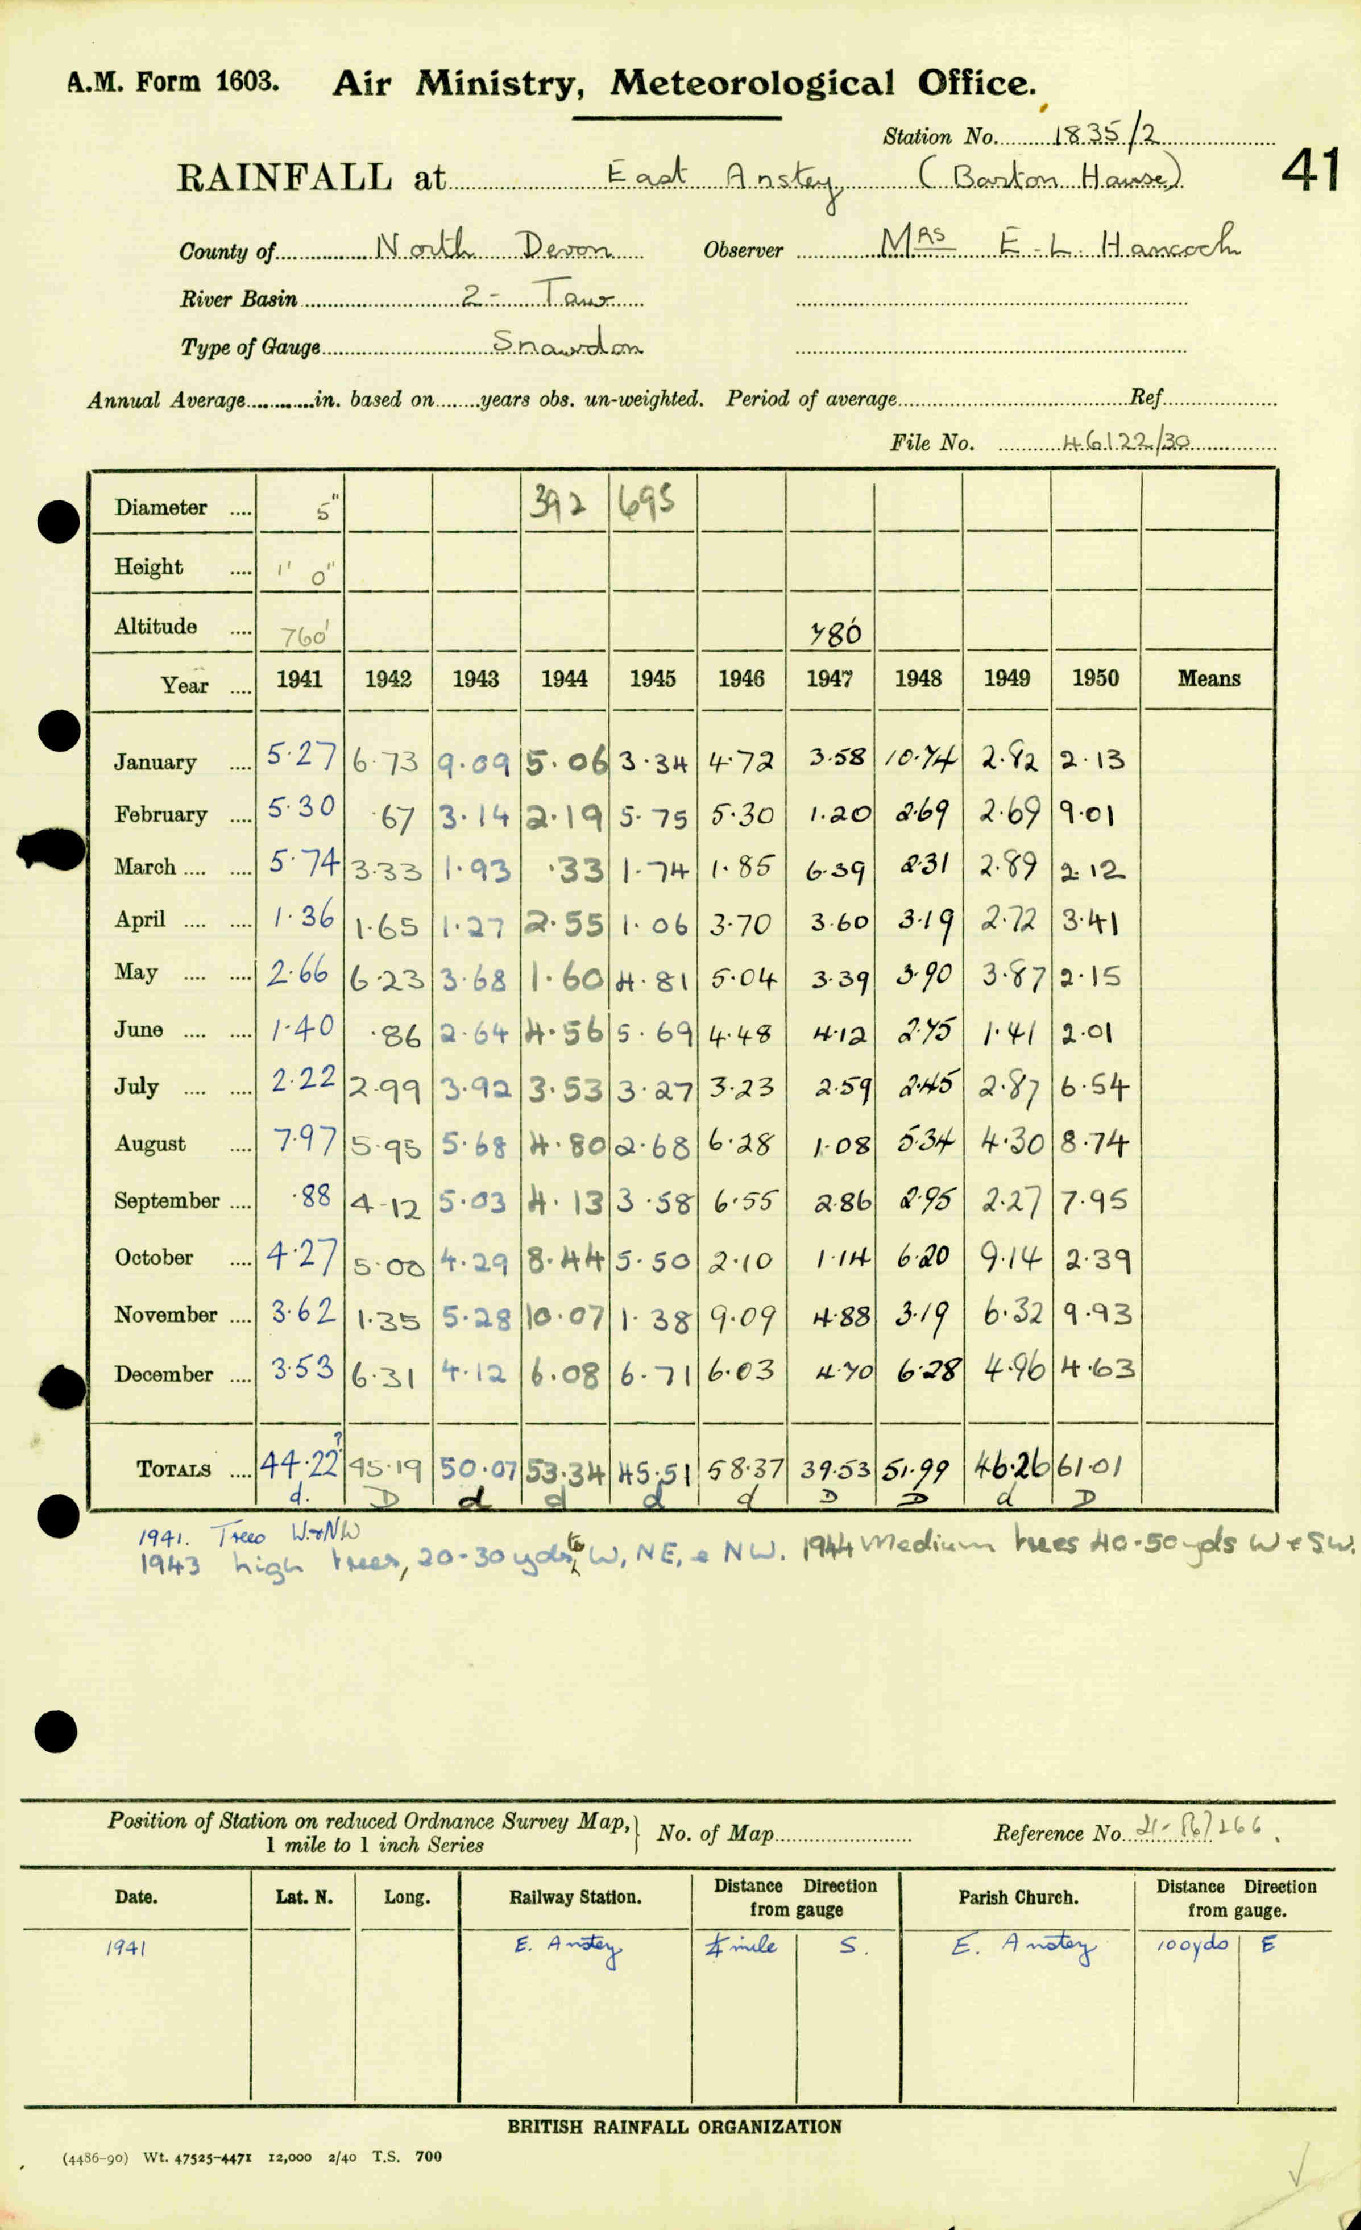 A.M. Form 1603. Air Ministry, Meteorological Office.
Station No. 1835/2
RAINFALL at East Anstey (Barton House) 41
County of North Devon Observer Mrs E. L. Hancock
River Basin 2 - Taw
Type of Gauge Snowdon
Annual Average in. based on years obs. un-weighted. Period of average Ref
File No. 46122/30
Diameter .... 5" 392 695
Height .... 1' 0"
Altitude .... 760' 780'
Year .... 1941 1942 1943 1944 1945 1946 1947 1948 1949 1950 Means
January .... 5·27 6·73 9·09 5·06 3·34 4·72 3·58 10·74 2·82 2·13
February .... 5·30 ·67 3·14 2·19 5·75 5·30 1·20 2·69 2·69 9·01
March .... .... 5·74 3·33 1·93 ·33 1·74 1·85 6·39 2·31 2·89 2·12
April .... .... 1·36 1·65 1·27 2·55 1·06 3·70 3·60 3·19 2·72 3·41
May .... .... 2·66 6·23 3·68 1·60 4·81 5·04 3·39 3·90 3·87 2·15
June .... .... 1·40 ·86 2·64 4·56 5·69 4·48 4·12 2·75 1·41 2·01
July .... .... 2·22 2·99 3·92 3·53 3·27 3·23 2·59 2·45 2·87 6·54
August .... 7·97 5·95 5·68 4·80 2·68 6·28 1·08 5·34 4·30 8·74
September .... ·88 4·12 5·03 4·13 3·58 6·55 2·86 2·95 2·27 7·95
October .... 4·27 5·00 4·29 8·44 5·50 2·10 1·14 6·20 9·14 2·39
November .... 3·62 1·35 5·28 10·07 1·38 9·09 4·88 3·19 6·32 9·93
December .... 3·53 6·31 4·12 6·08 6·71 6·03 4·70 6·28 4·96 4·63
TOTALS .... 44·22? 45·19 50·07 53·34 45·51 58·37 39·53 51·99 46·26 61·01
d. D d d d d D D d D
1941. Trees W & NW
1943 high trees, 20-30 yds to W, NE, & NW. 1944 Medium trees 40-50 yds W & SW.
Position of Station on reduced Ordnance Survey Map, } No. of Map Reference No. 21-
1 mile to 1 inch Series
Date. Lat. N. Long. Railway Station. Distance Direction from gauge Parish Church. Distance Direction from gauge.
1941 E. Anstey ¼ mile S. E. Anstey 100 yds E
BRITISH RAINFALL ORGANIZATION
(4486-90) Wt. 47525-4471 12,000 2/40 T.S. 700